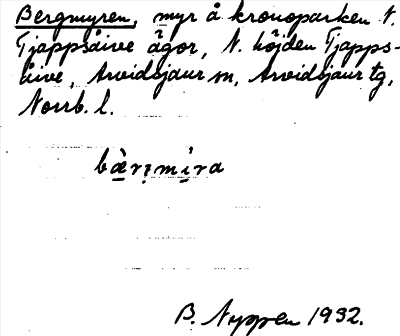 Bergmyren, myr å kronoparken N.
Tjappsåive ägor, N. höjden Tjapps-
åive, Arvidsjaur sn, Arvidsjaur tg,
Norrb. l.
bæ̀rm̥i̯ra
B. Nyppen 1932.